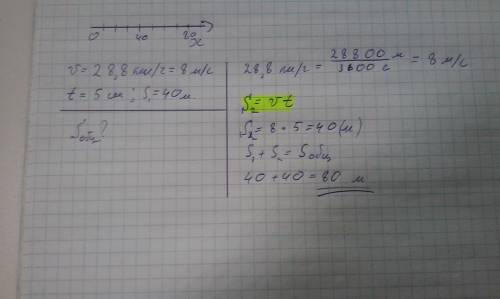 0 40 80 x
v = 28,8 км/г = 8 м/с
t = 5 см; S₁ = 40 м
Sобщ?
28,8 км/г = 28800 м / 3600 с = 8 м/с
S₂ = vt
S₂ = 8 · 5 = 40 (м)
S₁ + S₂ = Sобщ
40 + 40 = 80 м